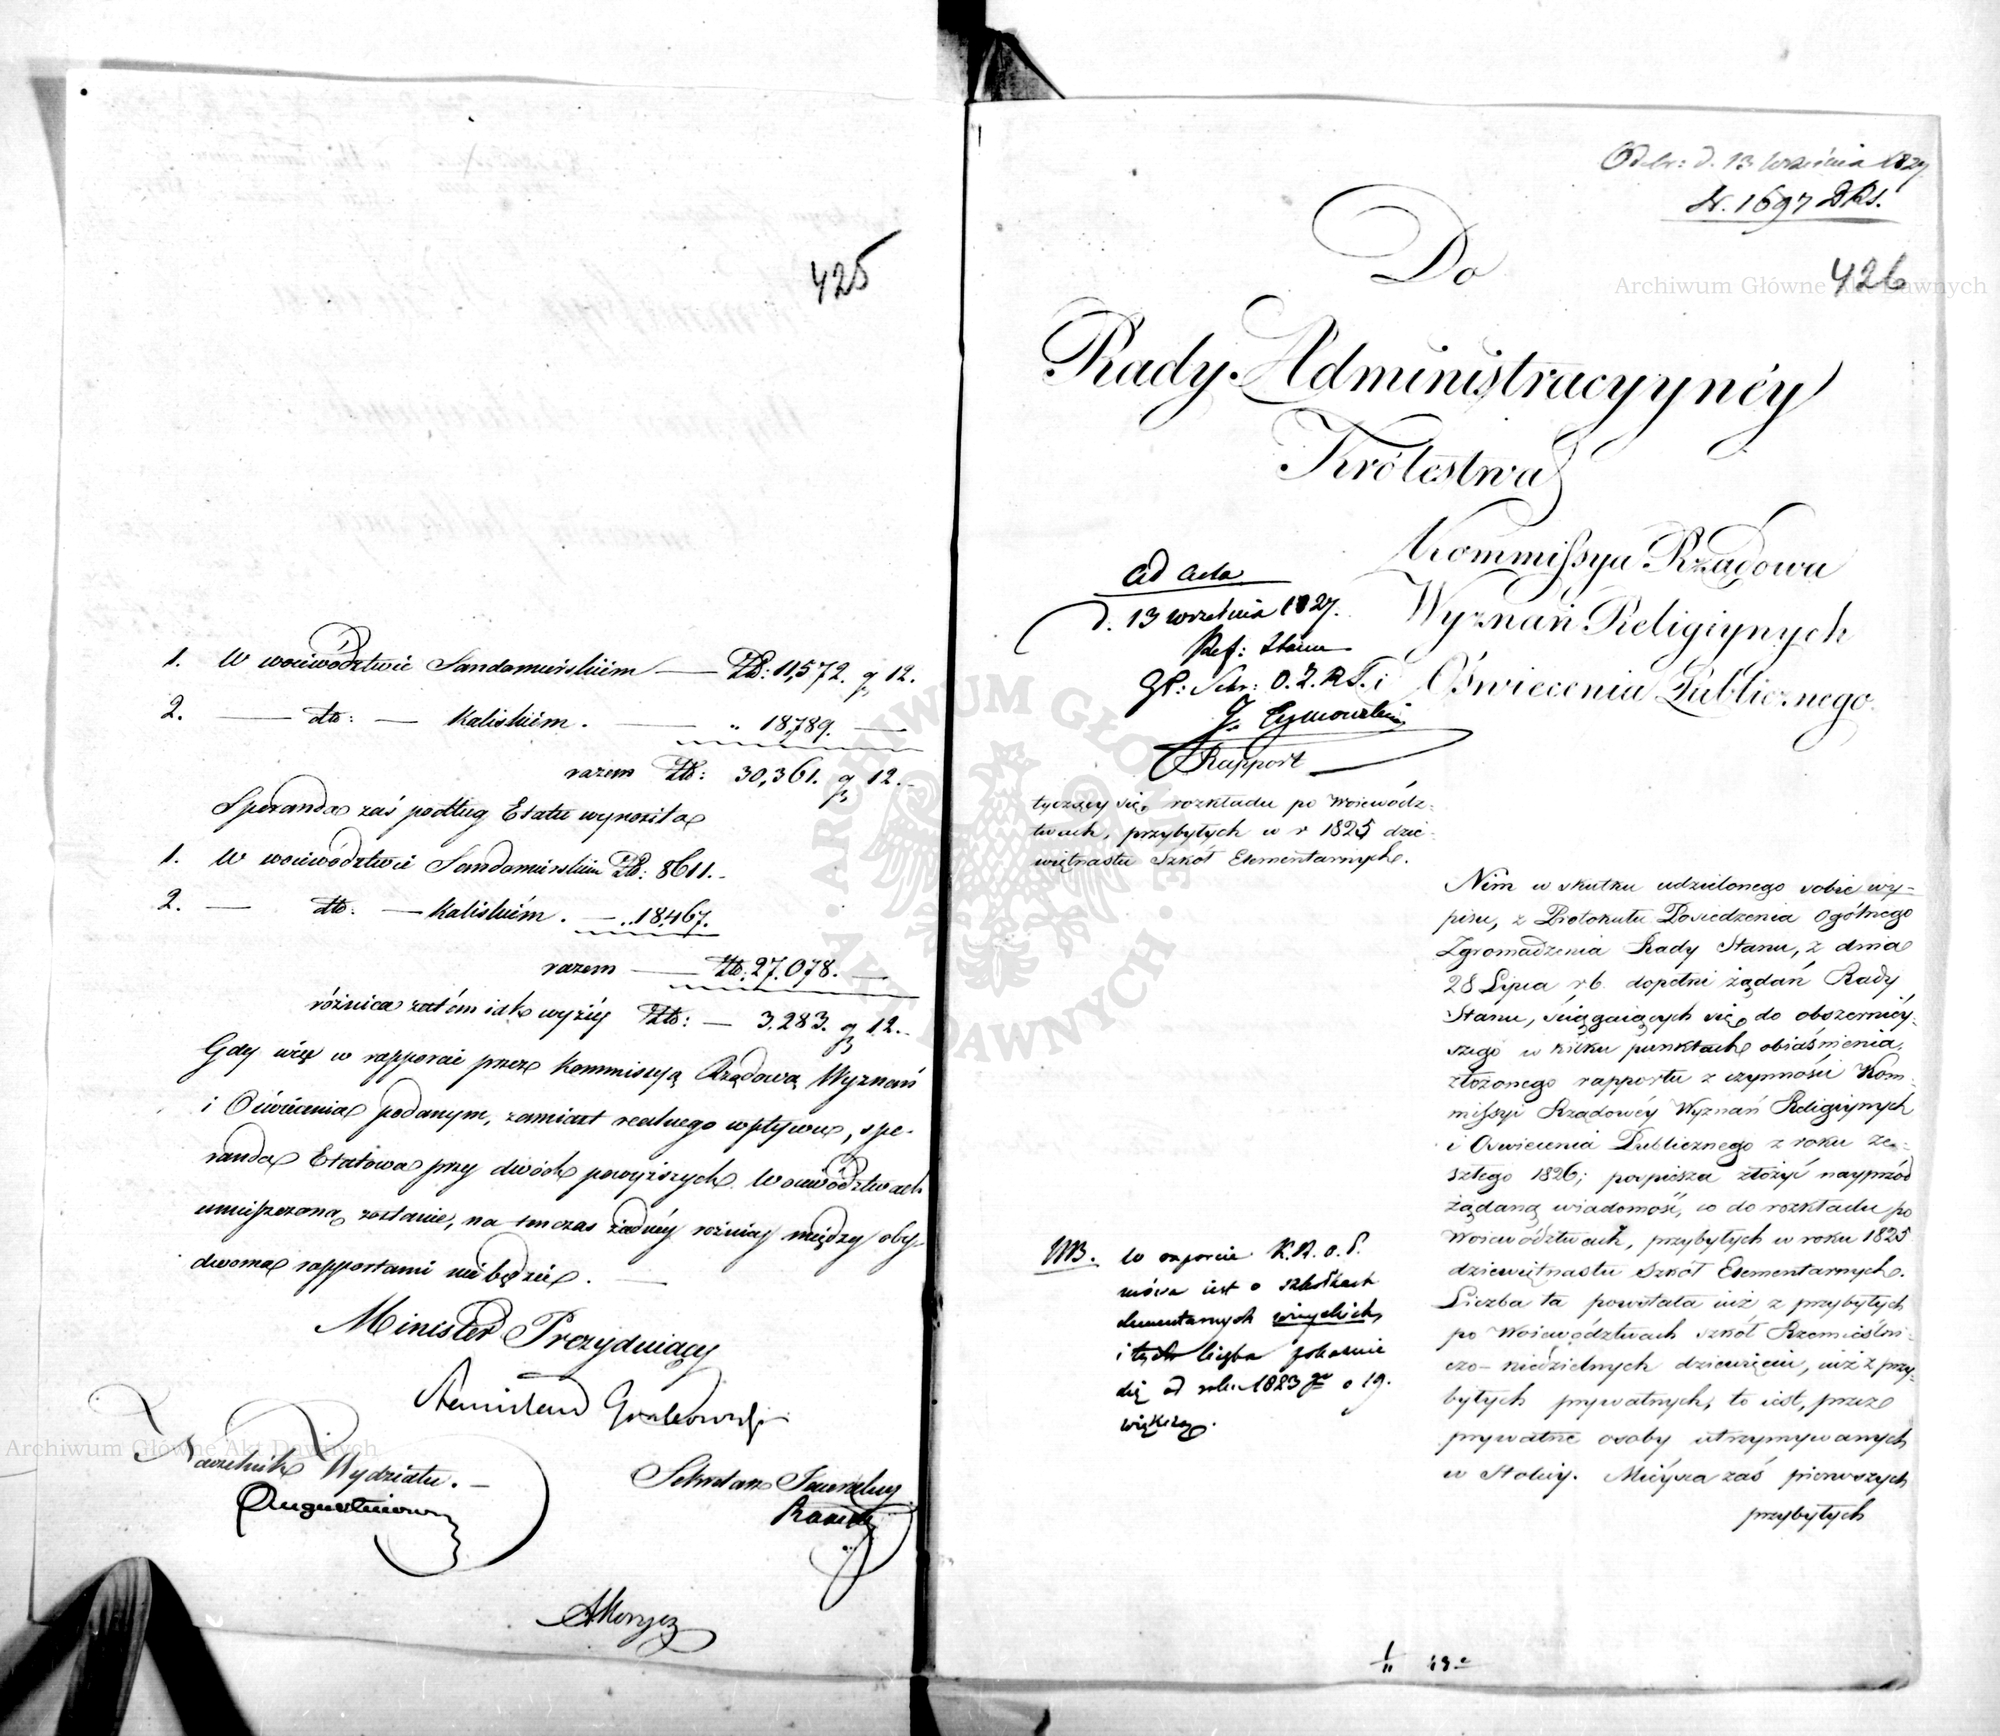 425
1. W woiewództwie Sandomirskiem — Złt: 11,572. gr 12.
2. — dto: — Kaliskiém. — „ 18,789. —
razem Złt: 30,361. gr 12.
Speranda zaś podług Etatu wynosiła
1. W woiewództwie Sandomirskiém Zł: 8611.
2. — dto: — Kaliskiém. — „ 18,467.
razem — Złt. 27.078. —
różnica zatém iak wyżéy Złt: — 3.283. gr 12.
Gdy więc w rapporcie przez Kommissyą Rządową Wyznań
i Oświecenia podanym, zamiast realnego wpływu, spe-
randa Etatowa przy dwóch powyższych Woiewództwach
umieszczoną zostanie, na tenczas żadnéy różnicy między oby-
dwoma rapportami nie będzie. —
Minister Prezyduiący
Stanisław Grabowski
Naczelnik Wydziału. —
Augustinow
Sekretarz Jeneralny
AMorycz
Odebr: d. 13 Września 1827
Nr. 1697 DKS.
426
Do
Rady Administracyynéy
Królestwa
Kommissya Rządowa
Wyznań Religiynych
i Oświecenia Publicznego.
ad acta
d. 13 września 1827.
Ref: Stanu
J. Tymowski
Rapport
tyczący się, rozkładu po Woiewódz-
twach, przybyłych w r 1825 dzie-
więtnastu Szkół Elementarnych.
Nim w skutku udzielonego sobie wy-
pisu, z Protokułu Posiedzenia Ogólnego
Zgromadzenia Rady Stanu, z dnia
28 Lipca r b. dopełni żądań Rady
Stanu, ściągaiących się do obszerniéy-
szego w kilku punktach obiaśnienia,
złożonego rapportu z czynności Kom-
missyi Rządowéy Wyznań Religiynych
i Oświecenia Publicznego z roku ze-
szłego 1826; pospiesza złożyć nayprzód
żądaną wiadomość, co do rozkładu po
Woiewództwach, przybyłych w roku 1825
dziewiętnastu Szkół Elementarnych.
Liczba ta powstała iuż z przybyłych
po Woiewództwach szkół Rzemieślni-
czo-niedzielnych dziewięciu, iuż z przy-
byłych prywatnych, to iest, przez
prywatne osoby utrzymywanych
w Stolicy. Mieysca zaś pierwszych
przybyłych
NB. W raporcie K.R.O.P.
mowa iest o szkółkach
elementarnych wieyskich,
i tych liczba pokazuie
się od roku 1823 go o 19.
większą.
Archiwum Główne Akt Dawnych
Archiwum Główne Akt Dawnych
ARCHIWUM GŁÓWNE AKT DAWNYCH